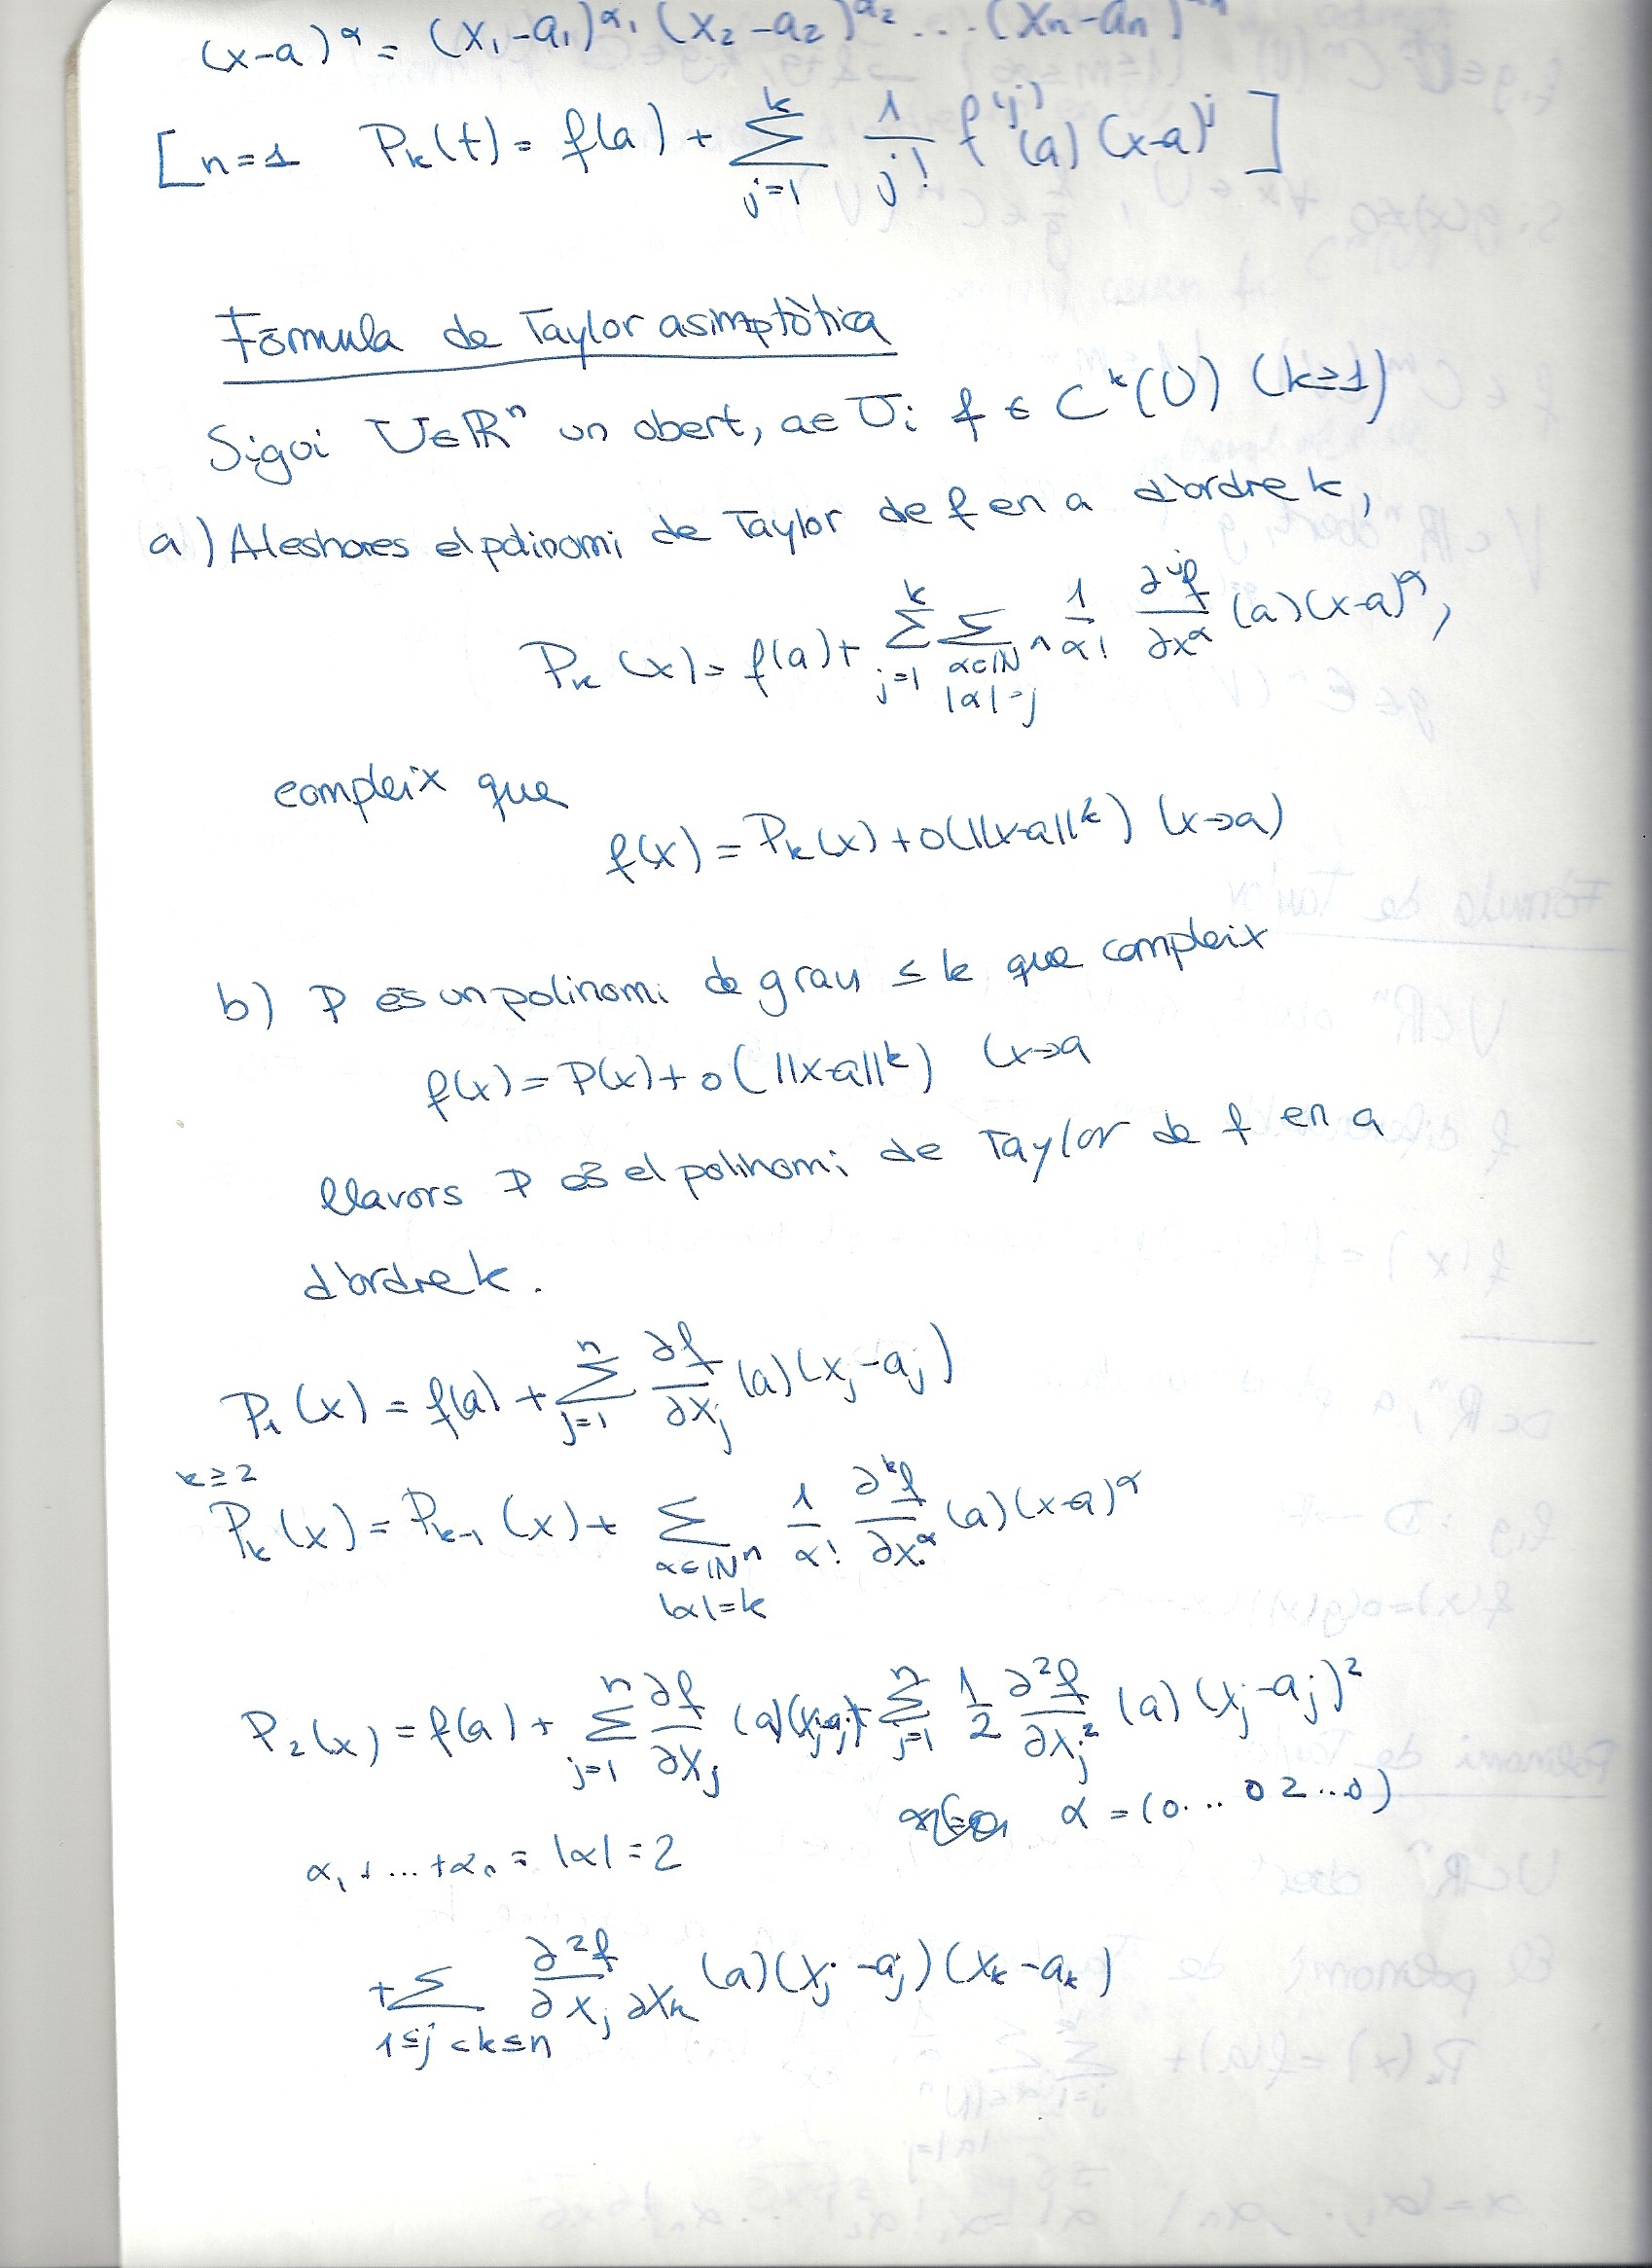 (x-a)^α = (x₁-a₁)^α₁ (x₂-a₂)^α₂ ... (xₙ-aₙ)
[n=1 Pₖ(t) = f(a) + Σ_{j=1}^{k} 1/j! f^(j)(a) (x-a)^j ]
Fórmula de Taylor asimptòtica
Sigui U∈ℝⁿ un obert, a∈U i f ∈ C^k(U) (k≥1)
a) Aleshores el polinomi de Taylor de f en a d'ordre k,
Pₖ(x) = f(a) + Σ_{j=1}^{k} Σ_{α∈ℕⁿ |α|=j} 1/α! ∂^j f/∂x^α (a)(x-a)^α,
compleix que
f(x) = Pₖ(x) + o(||x-a||^k) (x→a)
b) P és un polinomi de grau ≤ k que compleix
f(x) = P(x) + o(||x-a||^k) (x→a
llavors P és el polinomi de Taylor de f en a
d'ordre k.
P₁(x) = f(a) + Σ_{j=1}^{n} ∂f/∂xⱼ (a)(xⱼ-aⱼ)
k≥2
Pₖ(x) = Pₖ₋₁(x) + Σ_{α∈ℕⁿ |α|=k} 1/α! ∂^k f/∂x^α (a)(x-a)^α
P₂(x) = f(a) + Σ_{j=1}^{n} ∂f/∂xⱼ (a)(xⱼ-aⱼ) + Σ_{j=1}^{n} 1/2 ∂²f/∂xⱼ² (a) (xⱼ-aⱼ)²
α = (0... 0 2...0)
α₁+...+αₙ = |α| = 2
+ Σ_{1≤j<k≤n} ∂²f/∂xⱼ∂xₖ (a)(xⱼ-aⱼ)(xₖ-aₖ)